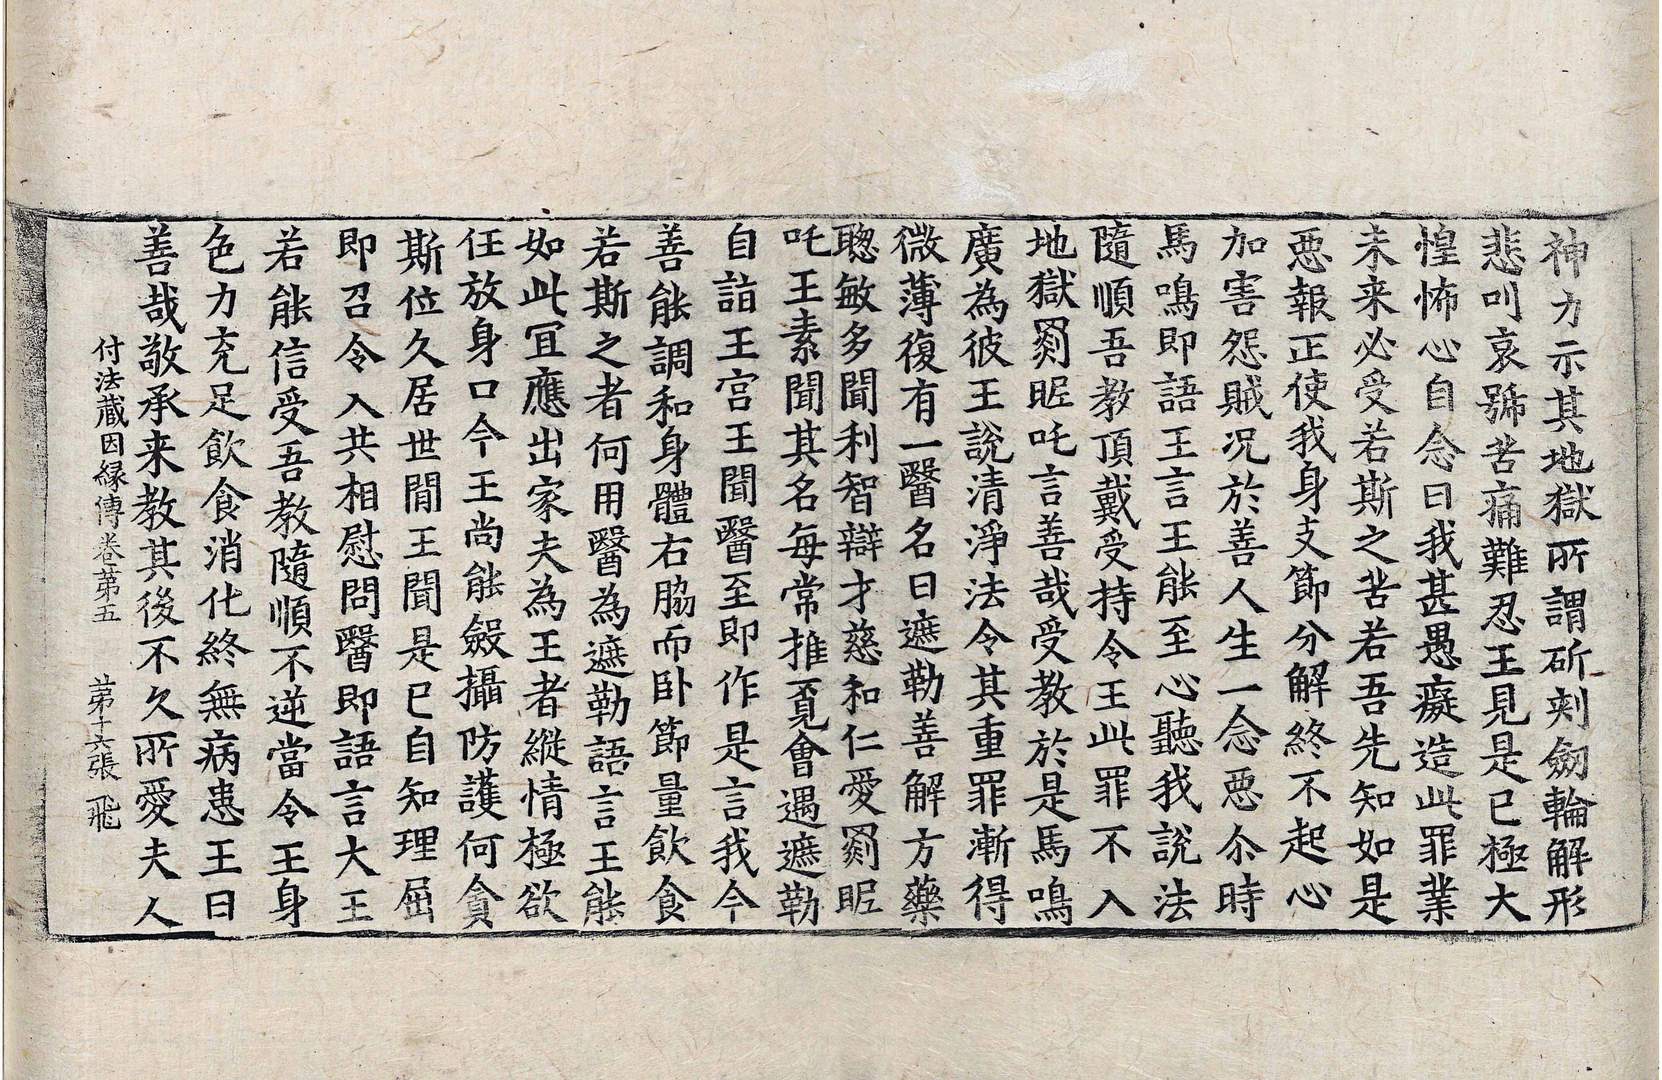 神力示其地獄所謂斫刺劒輪解形
悲叫哀號苦痛難忍王見是已極大
惶怖心自念曰我甚愚癡造此罪業
未来必受若斯之苦若吾先知如是
惡報正使我身支節分解終不起心
加害怨賊况於善人生一念惡尒時
馬鳴即語王言王能至心聽我說法
隨順吾教頂戴受持令王此罪不入
地獄罽昵吒言善哉受教於是馬鳴
廣為彼王說清淨法令其重罪漸得
微薄復有一醫名曰遮勒善解方藥
聰敏多聞利智辯才慈和仁愛罽昵
吒王素聞其名每常推覓會遇遮勒
自詣王宮王聞醫至即作是言我今
善能調和身體右脇而卧節量飲食
若斯之者何用醫為遮勒語言王能
如此冝應出家夫為王者縱情極欲
任放身口今王尚能斂攝防護何貪
斯位久居世間王聞是已自知理屈
即召令入共相慰問醫即語言大王
若能信受吾教隨順不逆當令王身
色力充足飲食消化終無病患王曰
善哉敬承来教其後不久所愛夫人
付法藏因緣傳卷第五　第十六張　飛